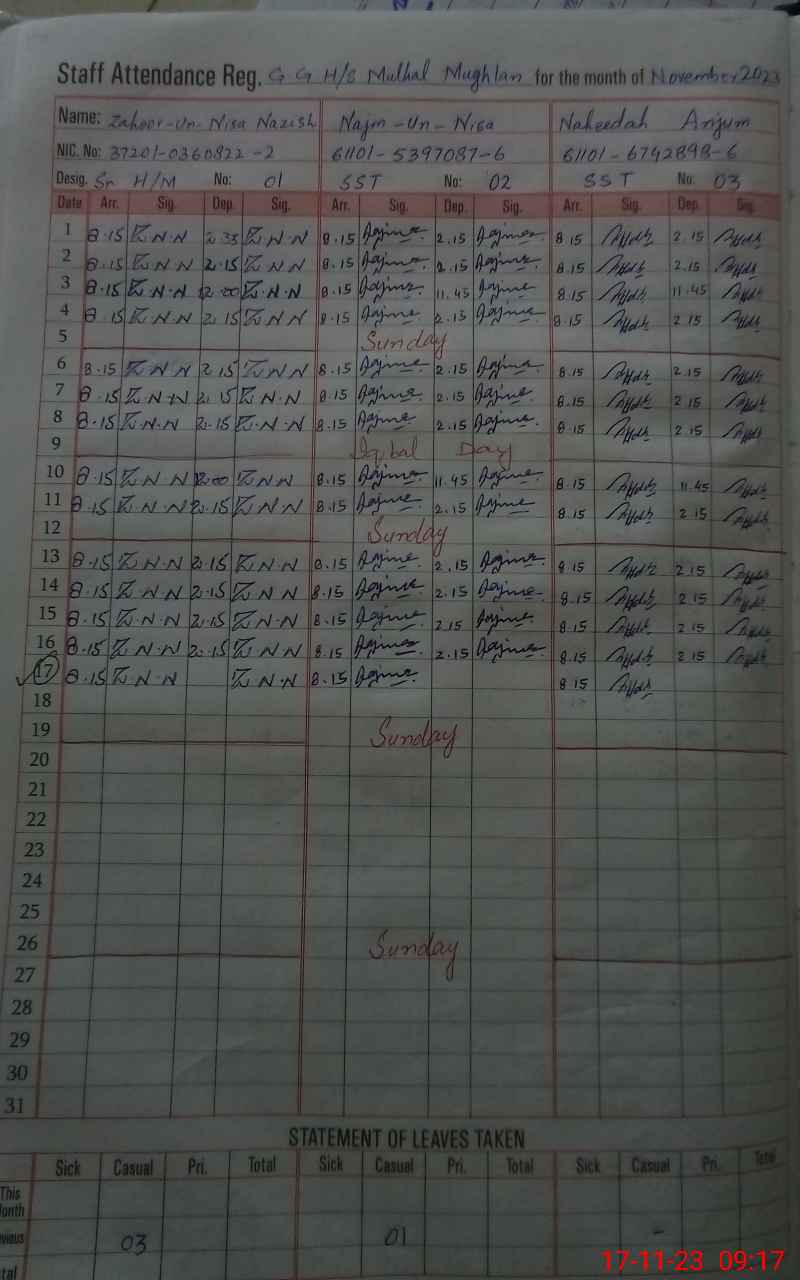 Staff Attendance Reg. G G H/S Mulhal Mughlan for the month of November 2023
Name: Zahoor-Un-Nisa Nazish Najm-Un-Nisa Naheedah Anjum
NIC. No: 37201-0360822-2 61101-5397087-6 61101-6742898-6
Desig. Sr H/M No: 01 SST No: 02 SST No: 03
Date Arr. Sig. Dep. Sig. Arr. Sig. Dep. Sig. Arr. Sig. Dep. Sig.
1 8.15 Z.N.N 2.35 Z.N.N 8.15 2.15 8 15 2 15
2 8.15 Z.N N 2.15 Z.N N 8.15 2.15 8 15 2.15
3 8.15 Z.N.N 12.00 Z.N.N 8.15 11.45 8 15 11.45
4 8.15 Z.N N 2.15 Z.N N 8.15 2.15 8 15 2 15
5 Sunday
6 8.15 Z N N 2.15 Z N N 8.15 2.15 8 15 2 15
7 8.15 Z.N.N 2.15 Z.N.N 8.15 2.15 8 15 2 15
8 8.15 Z.N.N 2.15 Z.N.N 8.15 2.15 8 15 2 15
9 Iqbal Day
10 8.15 Z N N 12.00 Z.N N 8.15 11.45 8 15 11.45
11 8.15 Z.N N 2.15 Z.N.N 8.15 2.15 8 15 2 15
12 Sunday
13 8.15 Z.N.N 2.15 Z.N.N 8.15 2.15 8 15 2 15
14 8.15 Z.N.N 2.15 Z.N.N 8.15 2.15 8 15 2 15
15 8.15 Z.N.N 2.15 Z.N.N 8.15 2 15 8 15 2 15
16 8.15 Z.N.N 2.15 Z.N.N 8.15 2.15 8 15 2 15
17 8.15 Z.N N Z.N.N 8.15 8 15
18
19 Sunday
20
21
22
23
24
25
26 Sunday
27
28
29
30
31
STATEMENT OF LEAVES TAKEN
Sick Casual Pri. Total Sick Casual Pri. Total Sick Casual Pri. Total
This
03 01 -
17-11-23 09:17